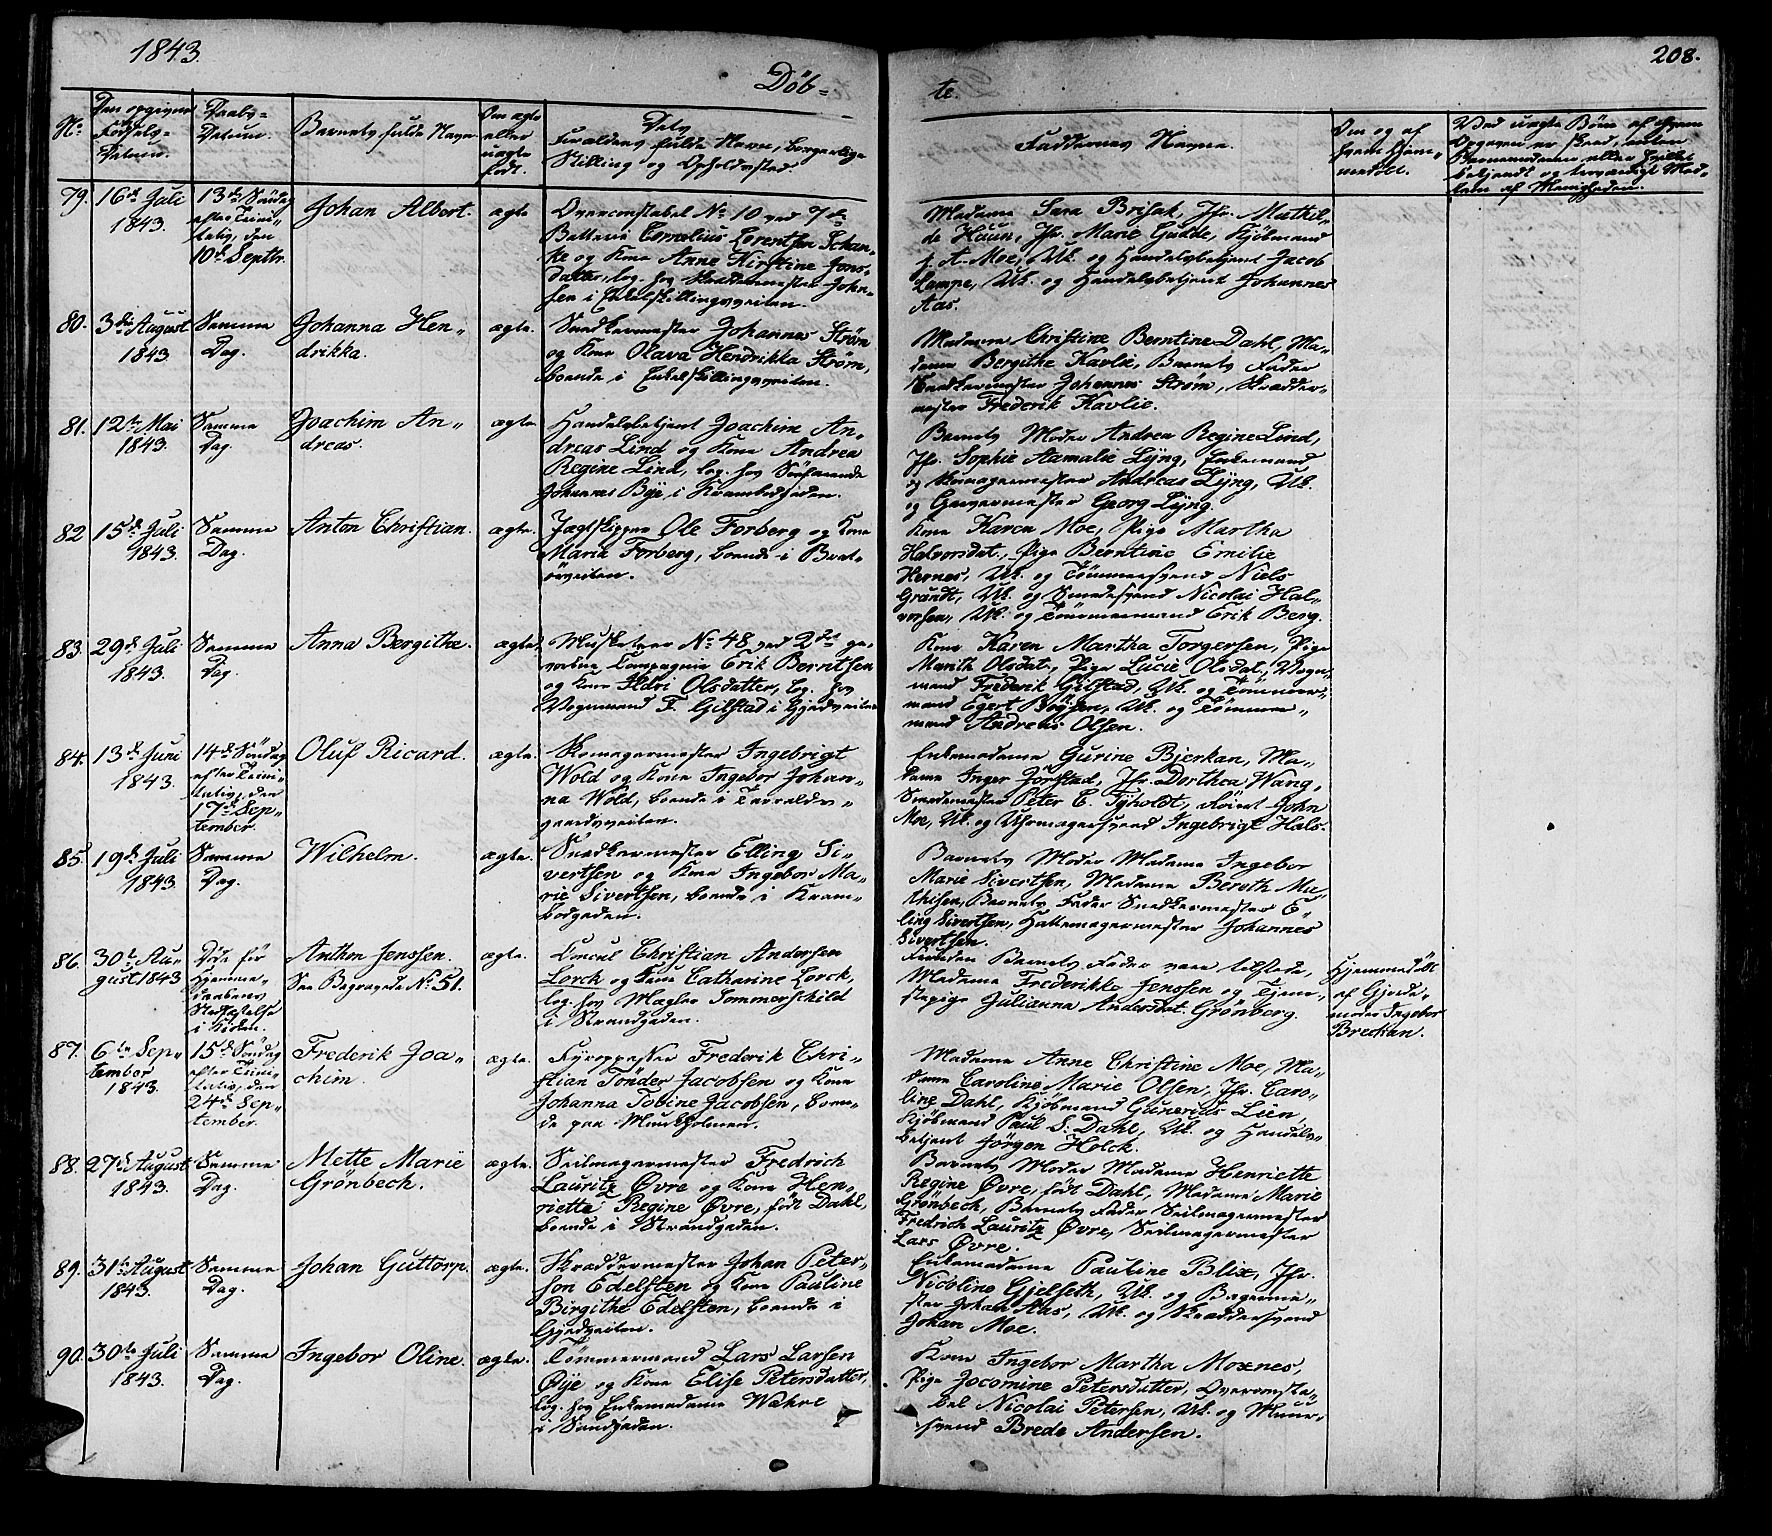 1843.
208.
Döb-
te.
No
Den opgivne
Födsels-
Datum.
Daabs-
Datum.
Barnets fulde Navn
Om ægte
eller
uægte
født.
Dets
Forældres fulde Navn, borgerlige
Stilling og Opholdssted.
Faddernes Navne.
Om og af
hvem hjem-
medøbt.
Ved uægte Børn af hvem
Opgaven er skeed, enten
Barnemoderen eller hvilket
bekjendt og troværdigt Med-
lem af Menigheden.
79.
16de Juli
1843.
13de Søndag
efter Trini-
tatis, den
10de Septbr.
Johan Albert.
ægte
Overconstabel No 10 ved 7de
Batterie Cornelius Lorentsen Schan-
ke og Kone Anne Kirstine Jons-
datter, log. hos Skræddermester John-
sen i Enkelskillingsveiten.
Madame Sara Brisak, Jfr. Mathil-
de Huun, Jfr. Marie Gudde, Kjøbmand
J. A. Moe, Uk. og Handelsbetjent Jacob
Lampe, Uk. og Handelsbetjent Johannes
Aas.
80.
3die August
1843
Samme
Dag.
Johanna Hen-
drikka.
ægte.
Snedkermester Johannes Strøm
og Kone Olava Hendrikka Strøm,
boende i Enkelskillingsveiten.
Madame Christine Berntine Dahl, Ma-
dame Bergithe Kavlie, Barnets Fader
Snedkermester Johannes Strøm, Skrædder-
mester Frederik Kavlie.
81.
12te Mai
1843.
Samme
Dag.
Joachim An-
dreas.
ægte
Handelsbetjent Joachim An-
dreas Lind og Kone Andrea
Regine Lind, log. hos Søefarende
Johannes Bye i Krambodgaden.
Barnets Moder Andrea Regine Lind,
Jfr. Sophie Aamalie Lyng, Enkemand
og Skomagermester Andreas Lyng, Uk.
og Garvermester Georg Lyng.
82
15de Juli
1843.
Samme
Dag.
Anton Christian.
ægte.
Jægtskipper Ole Forberg og Kone
Maria Forberg, boende i Brat-
ørveiten.
Kone Karen Moe, Pige Martha
Halvorsdat., Pige Berntine Emilie
Hernes, Uk. og Tømmersvend Niels
Grandt, Uk. og Smedesvend Nicolai Hal-
vorsen, Uk. og Tømmermand Erik Berg.
83.
29de Juli
1843.
Samme
Dag.
Anna Bergithe.
ægte.
Musketeer No 48 ved 2det ge-
vorbne Compagnie Erik Berntsen
og Kone Ildri Olsdatter, log. hos
Vognmand F. Gilstad i Gjedveiten
Kone Karen Martha Torgersen, Pige
Marith Olsdat., Pige Lucie Olsdat., Vogn-
mand Frederik Gilstad, Uk. og Tømmer-
mand Egert Bøysen, Uk. og Tømmer-
mand Andreas Olsen.
84.
13de Juni
1843.
14de Søndag
efter Trini-
tatis, den
17de Sep-
tember.
Oluf Ricard.
ægte.
Skomagermester Ingebrigt
Wold og Kone Ingebor Johan-
na Wold, boende i Taralds-
gaardsveiten.
Enkemadame Gurine Bjerkan, Ma-
dame Inger Jørstad, Jfr. Dorthea Wang,
Smedemester Peter C. Tyholdt, John
Moe, Uk. og Uhrmagersvend Ingebrigt Hals.
85.
19de Juli
1843.
Samme
Dag.
Wilhelm.
ægte.
Snedkermester Elling Si-
vertsen og Kone Ingebor Ma-
rie Sivertsen, boende i Kram-
bodgaden.
Barnets Moder Madame Ingebor
Marie Sivertsen, Madame Bereth Ma-
thisen, Barnets Fader Snedkermester E-
ling Sivertsen, Hattemagermester Johannes
Sivertsen.
86.
30te Au-
gust 1843
Døde før
Hjemme-
daabens
Stadfæstelse
i Kirken.
Anthon Jenssen.
See Begravede No 51.
ægte.
Consul Christian Andersen
Lorck og Kone Catharine Lorck,
log. hos Mægler Sommerschild
i Strandgaden.
Foruden Barnets Fader vare tilstede,
Madame Frederikke Jenssen og Tjene-
stepige Julianna Andersdat. Grønberg.
Hjemmedøbt
af Gjorde-
moder Ingebor
Breckan.
87.
6te Sep-
tember
1843.
15de Søndag
efter Trini-
tatis, den
24de Sep-
tember.
Frederik Joa-
chim.
ægte.
Fyroppasser Frederik Chri-
stian Tönder Jacobsen og Kone
Johanna Tobine Jacobsen, boen-
de paa Munkholmen.
Madame Anne Christine Moe, Ma-
dame Caroline Marie Olsen, Jfr. Caro-
line Dahl, Kjøbmand Gunerius Lien,
Kjøbmand Paul S. Dahl, Uk. og Handels-
betjent Jörgen Holck.
88.
27de August
1843.
Samme
Dag.
Mette Marie
Grönbech.
ægte.
Seilmagermester Fredrich
Lauritz Øvre og Kone Hen-
riette Regine Øvre, født Dahl,
boende i Strandgaden.
Barnets Moder Madame Henriette
Regine Øvre, født Dahl, Madame Marie
Grönbech, Barnets Fader Seilmagermester
Fredrich Lauritz Øvre, Seilmagermester
Lars Øvre.
89.
31te August
1843.
Samme
Dag.
Johan Guttorp.
ægte.
Skræddermester Johan Peter-
son Edelsten og Kone Pauline
Birgithe Edelsten, boende i
Gjedveiten.
Enkemadame Pauline Blix, Jfr.
Nicoline Gjelseth, Uk. og Bagerme-
ster Johan Aas, Uk. og Skræddersvend
Johan Moe.
90.
30te Juli
1843.
Samme
Dag.
Ingebor Oline.
ægte.
Tømmermand Lars Larsen
Øye og Kone Elise Petersdatter,
log. hos Enkemadame Wahre
i Sandgaden.
Kone Ingebor Martha Moxnes,
Pige Jocomine Petersdatter, Overconsta-
bel Nicolai Petersen, Uk. og Muur-
svend Brede Andersen.